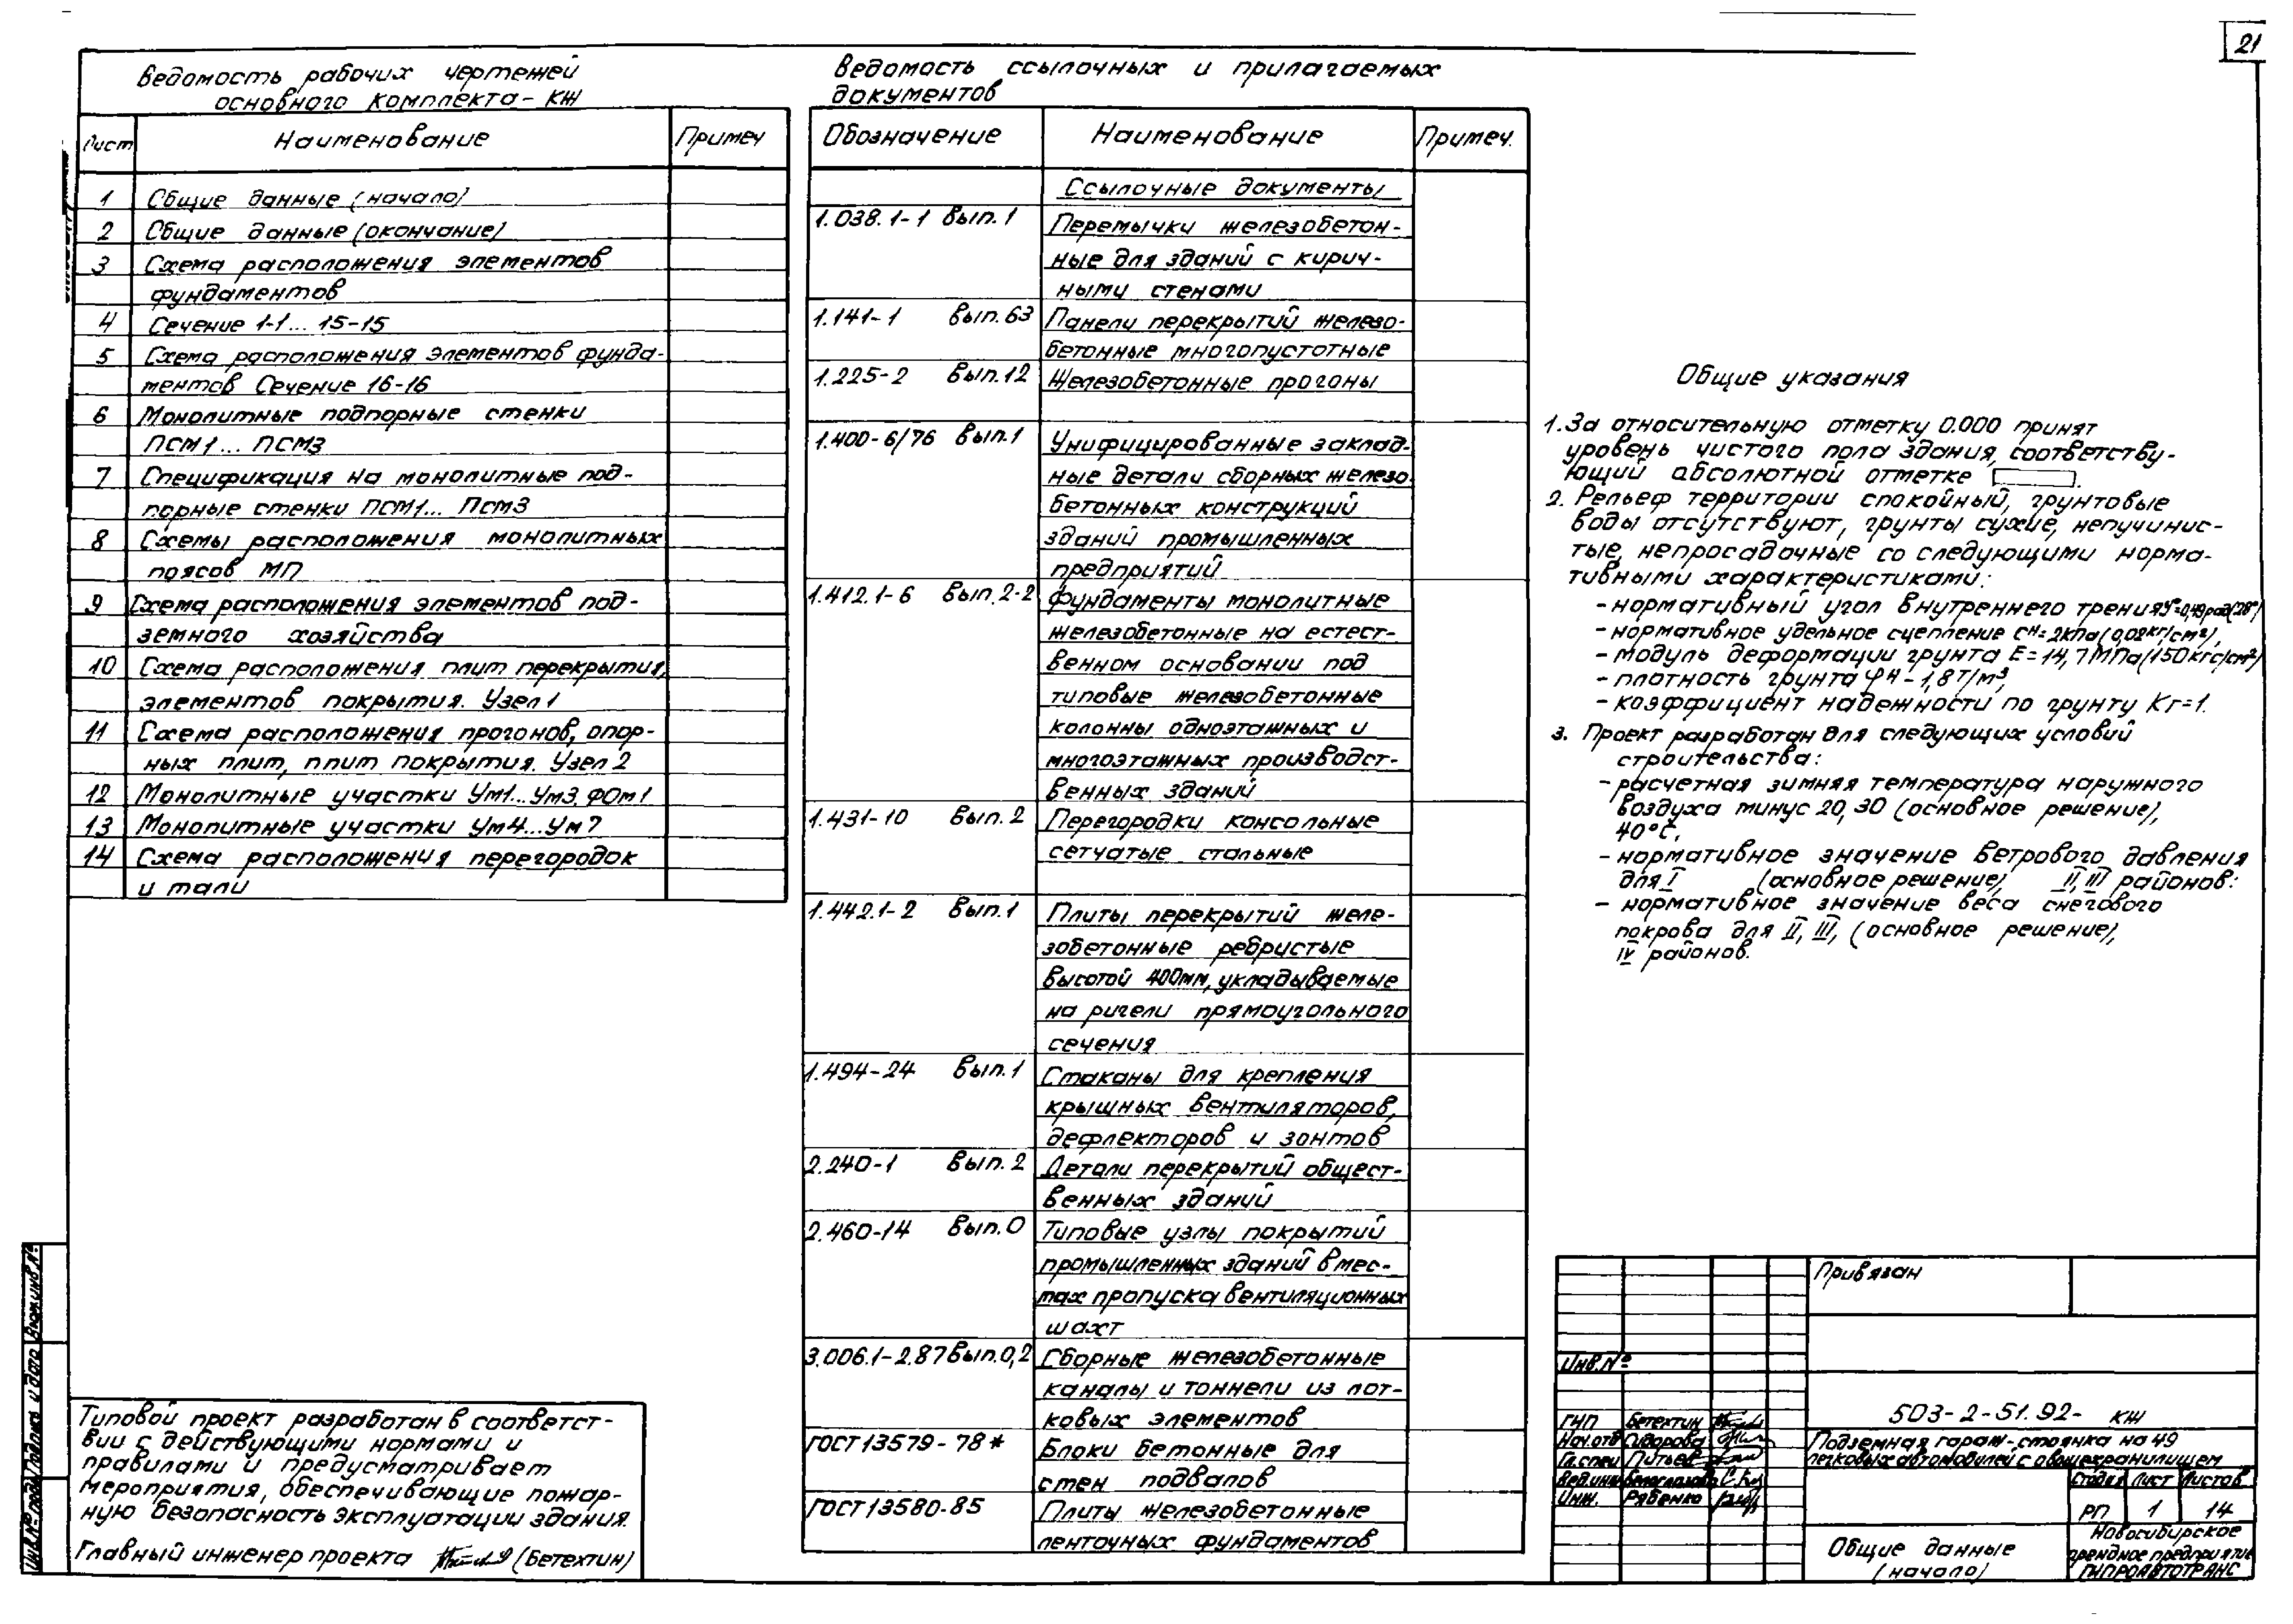 21
Ведомость рабочих чертежей
основного комплекта - КЖ
Лист Наименование Примеч
1 Общие данные (начало)
2 Общие данные (окончание)
3 Схема расположения элементов
фундаментов
4 Сечение 1-1... 15-15
5 Схема расположения элементов фунда-
ментов Сечение 16-16
6 Монолитные подпорные стенки
ПСМ1... ПСМ3
7 Спецификация на монолитные под-
порные стенки ПСМ1... ПСМ3
8 Схемы расположения монолитных
поясов МП
9 Схема расположения элементов под-
земного хозяйства
10 Схема расположения плит перекрытия,
элементов покрытия. Узел 1
11 Схема расположения прогонов, опор-
ных плит, плит покрытия. Узел 2
12 Монолитные участки Ум1...Ум3, ФОм1
13 Монолитные участки Ум4...Ум7
14 Схема расположения перегородок
и тали
Ведомость ссылочных и прилагаемых
документов
Обозначение Наименование Примеч.
Ссылочные документы
1.038.1-1 Вып.1 Перемычки железобетон-
ные для зданий с кирич-
ными стенами
1.141-1 Вып.63 Панели перекрытий железо-
бетонные многопустотные
1.225-2 Вып.12 Железобетонные прогоны
1.400-6/76 Вып.1 Унифицированные заклад-
ные детали сборных железо-
бетонных конструкций
зданий промышленных
предприятий
1.412.1-6 Вып.2-2 Фундаменты монолитные
железобетонные на естест-
венном основании под
типовые железобетонные
колонны одноэтажных и
многоэтажных производст-
венных зданий
1.431-10 Вып.2 Перегородки консольные
сетчатые стальные
1.442.1-2 Вып.1 Плиты перекрытий желе-
зобетонные ребристые
высотой 400мм, укладываемые
на ригели прямоугольного
сечения
1.494-24 Вып.1 Стаканы для крепления
крышных вентиляторов,
дефлекторов и зонтов
2.240-1 Вып.2 Детали перекрытий общест-
венных зданий
2.460-14 Вып.0 Типовые узлы покрытий
промышленных зданий в мес-
тах пропуска вентиляционных
шахт
3.006.1-2.87 Вып.0,2 Сборные железобетонные
каналы и тоннели из лот-
ковых элементов
ГОСТ 13579-78* Блоки бетонные для
стен подвалов
ГОСТ 13580-85 Плиты железобетонные
ленточных фундаментов
Общие указания
1. За относительную отметку 0.000 принят
уровень чистого пола здания, соответству-
ющий абсолютной отметке
2. Рельеф территории спокойный, грунтовые
воды отсутствуют, грунты сухие, непучинис-
тые, непросадочные со следующими норма-
тивными характеристиками:
- нормативный угол внутреннего трения φн=0,49рад(28°)
- нормативное удельное сцепление Cн=2кПа (0,02кг/см²),
- модуль деформации грунта E=14,7МПа(150кгс/см²)
- плотность грунта γн - 1,8т/м³,
- коэффициент надежности по грунту Кг=1.
3. Проект разработан для следующих условий
строительства:
- расчетная зимняя температура наружного
воздуха минус 20, 30 (основное решение),
40°С,
- нормативное значение ветрового давления
для I (основное решение), II, III районов:
- нормативное значение веса снегового
покрова для II, III, (основное решение),
IV районов.
Типовой проект разработан в соответст-
вии с действующими нормами и
правилами и предусматривает
мероприятия, обеспечивающие пожар-
ную безопасность эксплуатации здания.
Главный инженер проекта (Бетехтин)
Инв.№ подл. Подпись и дата Взам.инв.№
Привязан
Инв.№
503-2-51.92- КЖ
ГИП Бетехтин
Нач.отд Сидорова
Гл.спец Питьев
Вед.инж
Инж. Рябенко
Подземная гараж-стоянка на 49
легковых автомобилей с овощехранилищем
Стадия Лист Листов
РП 1 14
Общие данные
(начало)
Новосибирское
арендное предприятие
ГИПРОАВТОТРАНС